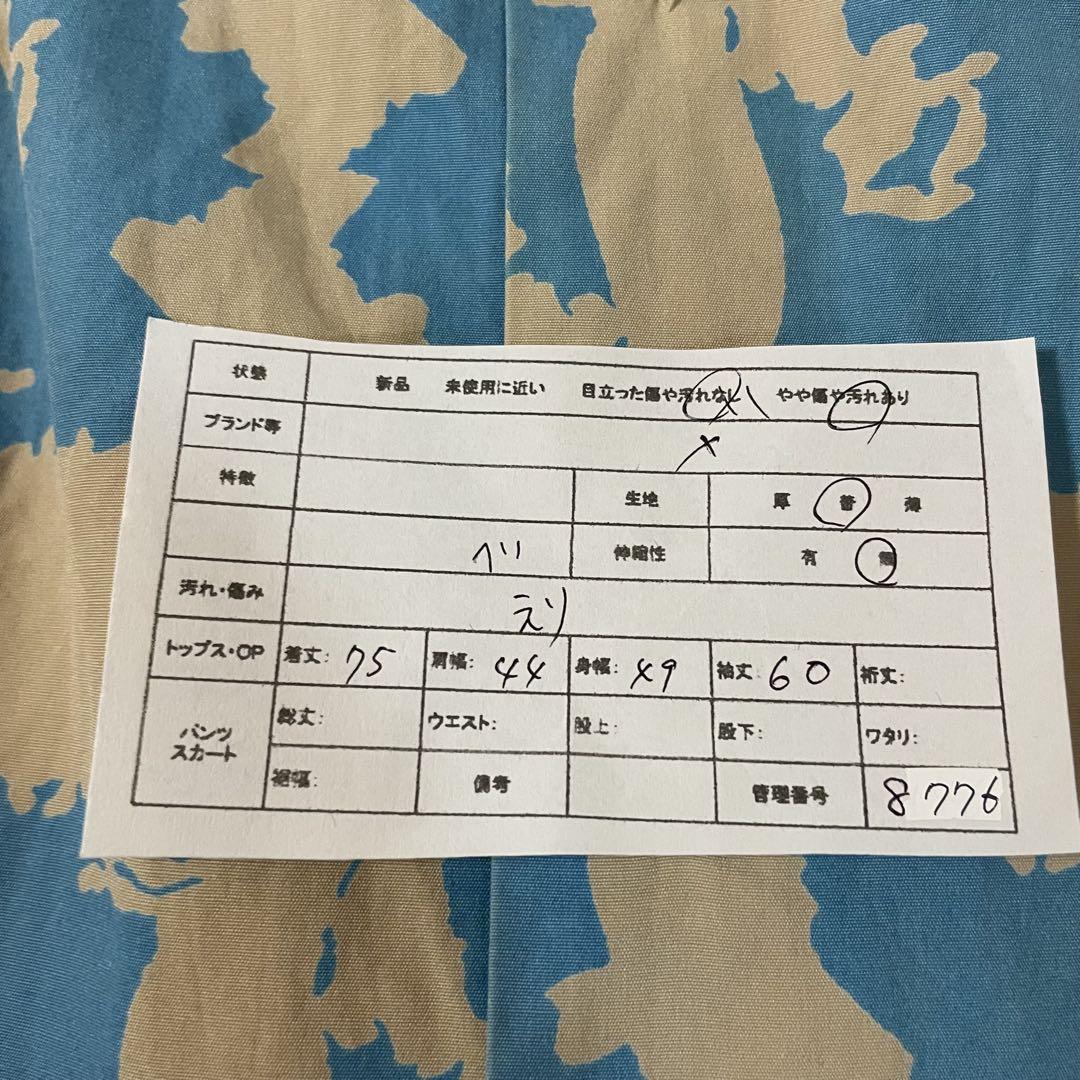 状態 新品 未使用に近い 目立った傷や汚れなし やや傷や汚れあり
ブランド等
特徴 生地 厚 普 薄
ベリ 伸縮性 有 無
汚れ・傷み えり
トップス・OP 着丈: 75 肩幅: 44 身幅: 49 袖丈: 60 裄丈:
パンツ スカート 総丈: ウエスト: 股上: 股下: ワタリ:
裾幅: 備考 管理番号 8776